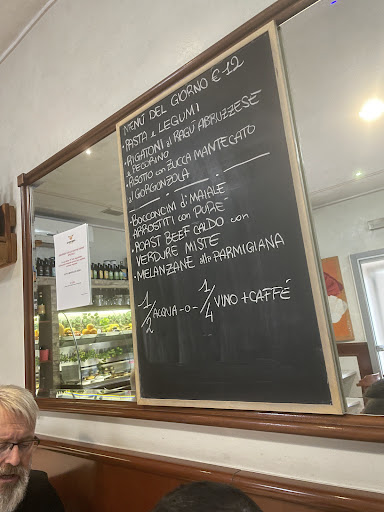 MENÙ DEL GIORNO € 12
• PASTA e LEGUMI
• RIGATONI al RAGÙ ABRUZZESE
e PECORINO
• RISOTTO con ZUCCA MANTECATO
al GORGONZOLA
• BOCCONCINI di MAIALE
ARROSTITI con PURÈ
• ROAST BEEF CALDO con
VERDURE MISTE
• MELANZANE alla PARMIGIANA
1/2 ACQUA - o - 1/4 VINO + CAFFÈ